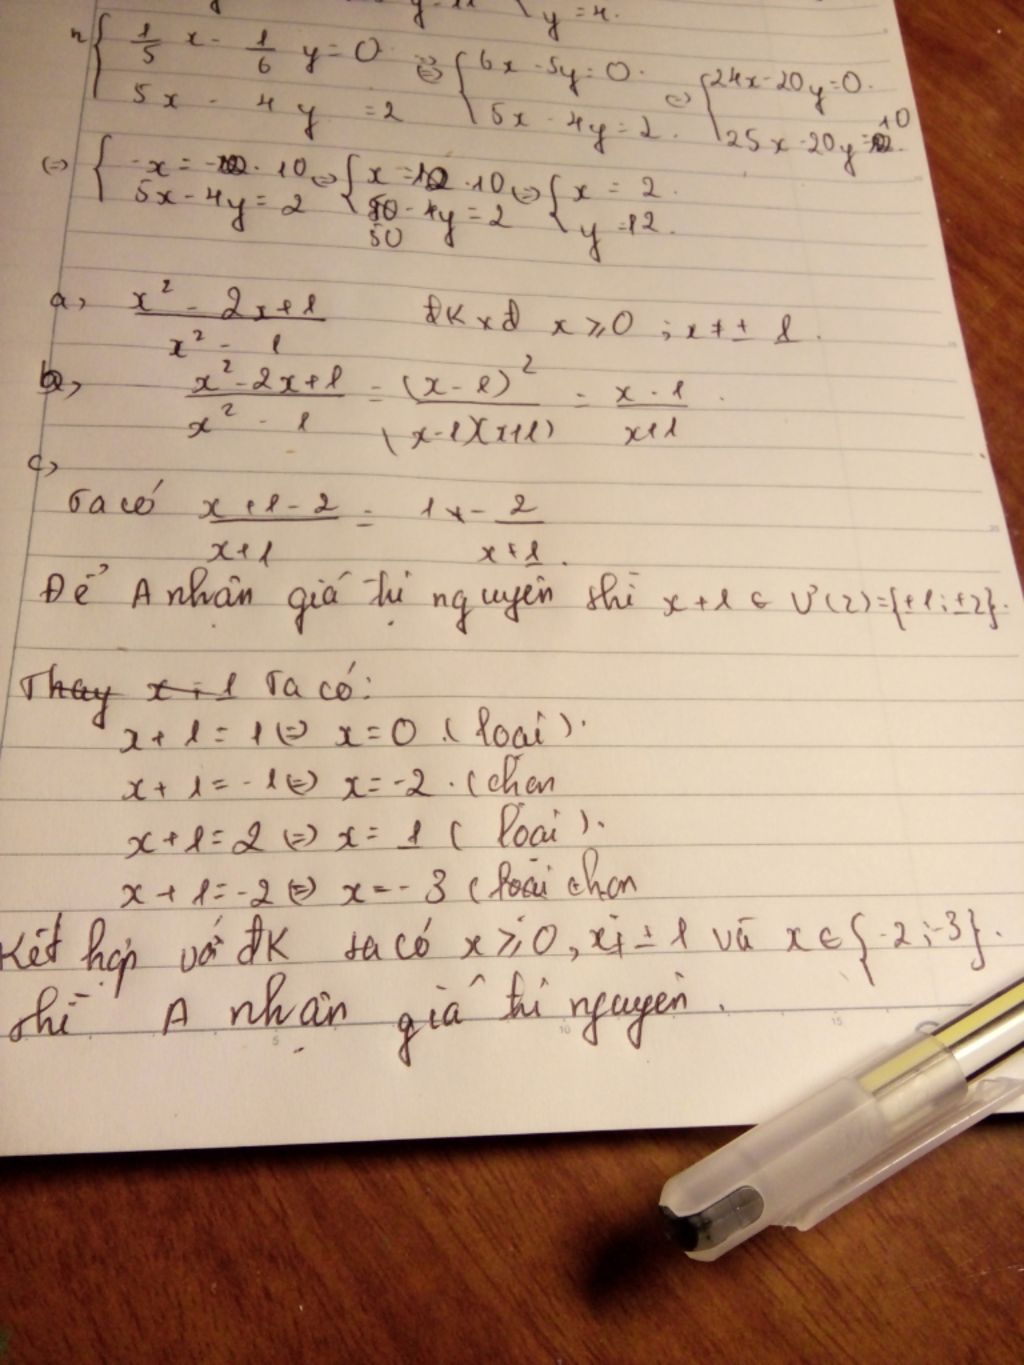 y = 4.
n { 1/5 x - 1/6 y = 0 <=> { 6x - 5y = 0. <=> { 24x - 20y = 0.
5x - 4y = 2 5x - 4y = 2. 25x - 20y = 10.
<=> { -x = -10 <=> { x = 10 <=> { x = 2.
5x - 4y = 2 50 - 4y = 2 y = 12.
a, (x² - 2x + 1)/(x² - 1) ĐKXĐ x ≥ 0 ; x ≠ ± 1.
b, (x² - 2x + 1)/(x² - 1) = (x - 1)²/(x - 1)(x + 1) = (x - 1)/(x + 1).
c,
Ta có (x + 1 - 2)/(x + 1) = 1 - 2/(x + 1).
Để A nhận giá trị nguyên thì x + 1 ∈ Ư(2) = {±1; ±2}.
Thay x = 1 Ta có:
x + 1 = 1 <=> x = 0 (loại).
x + 1 = -1 <=> x = -2. (chọn
x + 1 = 2 <=> x = 1 ( loại ).
x + 1 = -2 <=> x = -3 ( loại chọn
Kết hợp với ĐK ta có x ≥ 0, x ≠ ± 1 và x ∈ {-2; -3}.
thì A nhận giá trị nguyên.